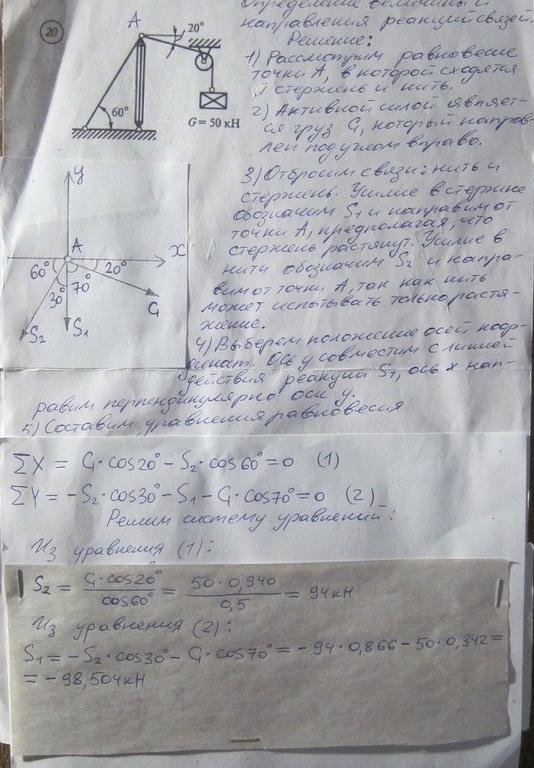 Определение величины и
направления реакций связей.
Решение:
1) Рассмотрим равновесие
точки А, в которой сходятся
стержень и нить.
2) Активной силой являет-
ся груз G, который направ-
лен под углом вправо.
3) Отбросим связи: нить и
стержень. Усилие в стержне
обозначим S1 и направим от
точки А, предполагая, что
стержень растянут. Усилие в
нити обозначим S2 и напра-
вим от точки А, так как нить
может испытывать только растя-
жение.
4) Выберем положение осей коор-
динат. Ось y совместим с линией
действия реакции S1, ось x нап-
равим перпендикулярно оси y.
5) Составим уравнения равновесия
20
A
20°
60°
G = 50 кН
y
A
x
60°
20°
30°
70°
G
S2
S1
ΣX = G·cos20° − S2·cos60° = 0 (1)
ΣY = −S2·cos30° − S1 − G·cos70° = 0 (2)
Решим систему уравнений:
Из уравнения (1):
S2 = G·cos20° / cos60° = 50·0,940 / 0,5 = 94кН
Из уравнения (2):
S1 = −S2·cos30° − G·cos70° = −94·0,866 − 50·0,342 =
= −98,504кН